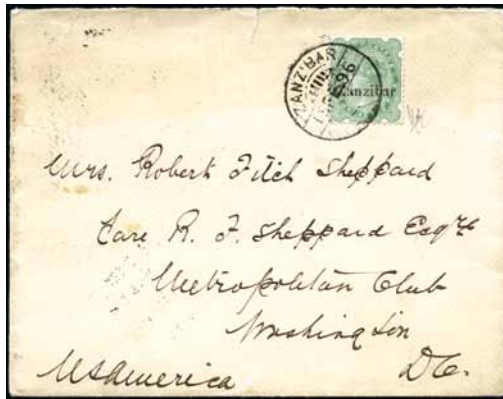 ZANZIBAR
96
Zanzibar
Mrs. Robert Fitch Sheppard
Care R. F. Sheppard Esqre
Metropolitan Club
Washington
DC.
USAmerica